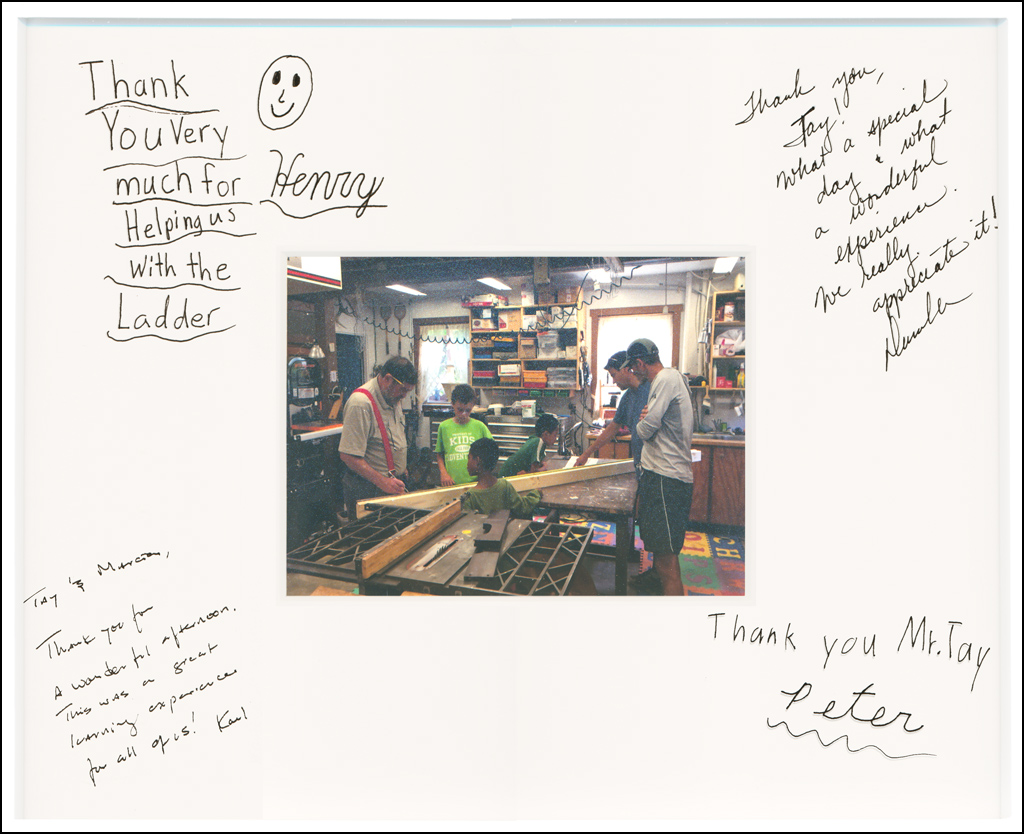 Thank
You Very
much for
Helping us
with the
Ladder
Henry
Thank you,
Tay!
What a special
day & what
a wonderful
experience.
We really
appreciate it!
KIDS
Tay & Marcia,
Thank you for
a wonderful afternoon.
This was a great
learning experience
for all of us! Karl
Thank you Mr. Tay
Peter